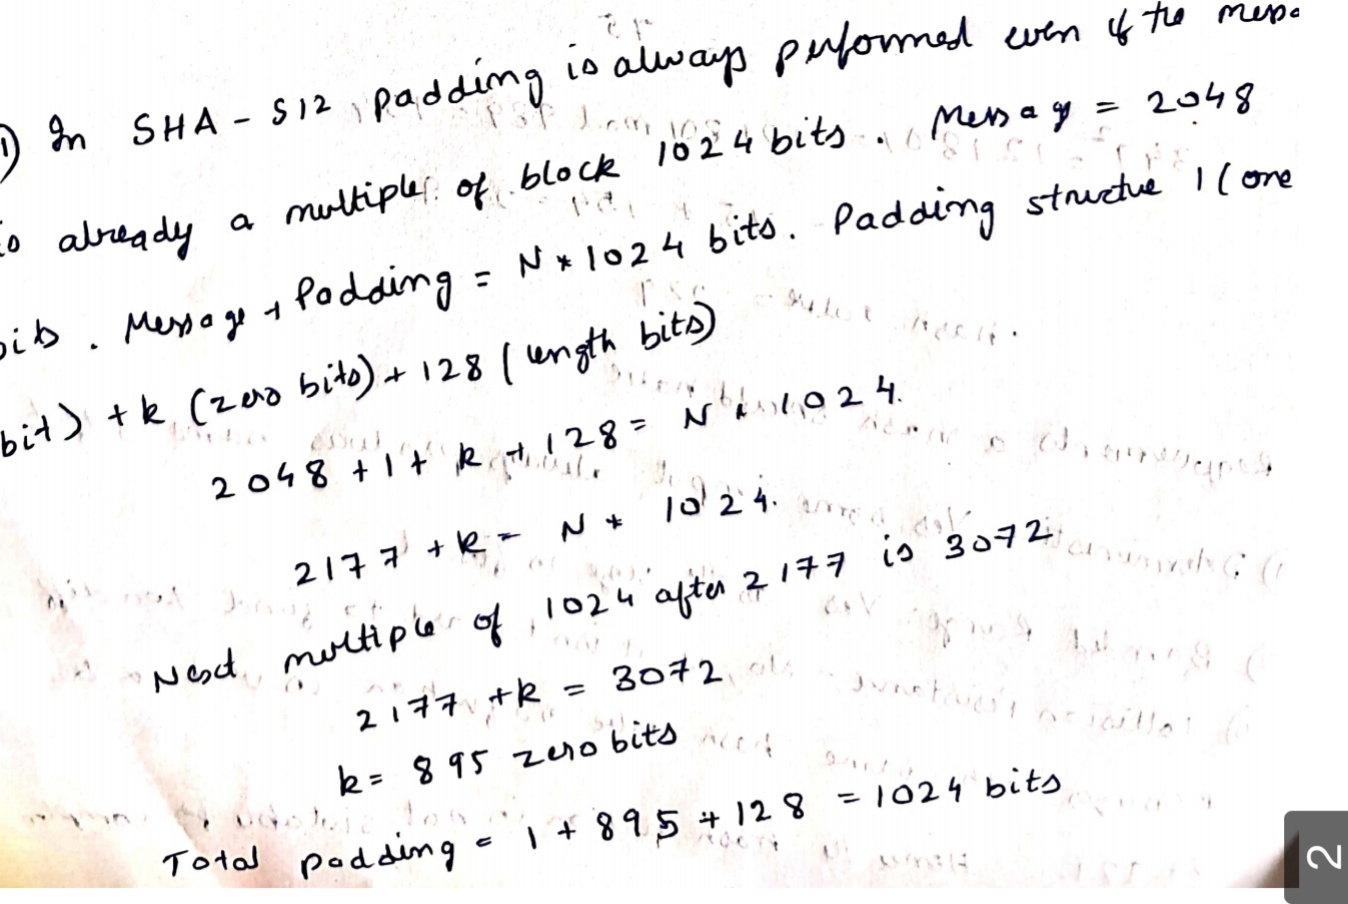 1) In SHA-512, padding is always performed even if the messa
is already a multiple of block 1024 bits. Message = 2048
bits. Message + Padding = N * 1024 bits. Padding structue 1 (one
bit) + k (zero bits) + 128 (length bits)
2048 + 1 + k + 128 = N * 1024.
2177 + k = N * 1024.
Next multiple of 1024 after 2177 is 3072
2177 + k = 3072
k = 895 zero bits
Total padding = 1 + 895 + 128 = 1024 bits
2